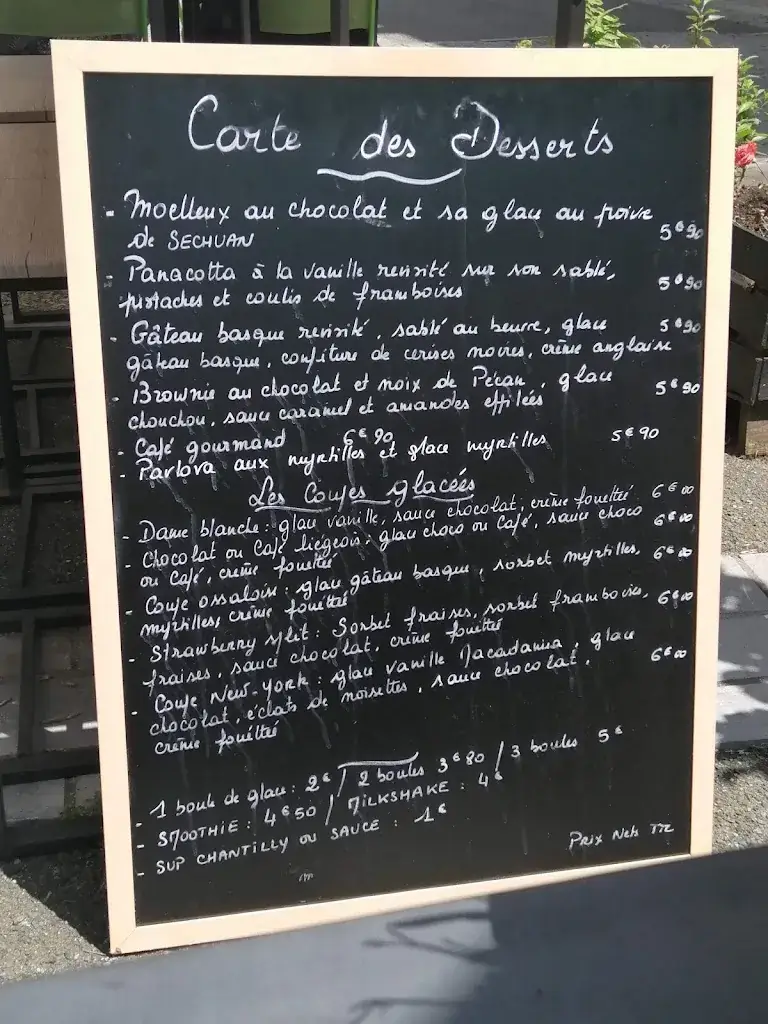 Carte des Desserts
- Moelleux au chocolat et sa glace au poivre
de SECHUAN 5€90
- Panacotta à la vanille revisité sur son sablé,
pistaches et coulis de framboises 5€90
- Gâteau basque revisité, sablé au beurre, glace 5€90
gâteau basque, confiture de cerises noires, crème anglaise
- Brownie au chocolat et noix de Pécan, glace 5€90
chouchou, sauce caramel et amandes effilées
- Café gourmand 6€90
- Parlova aux myrtilles et glace myrtilles 5€90
Les Coupes glacées
- Dame blanche : glace vanille, sauce chocolat, crème fouettée 6€00
- Chocolat ou Café liégeois : glace choco ou Café, sauce choco 6€00
ou Café, crème fouettée
- Coupe ossaloise : glace gâteau basque, sorbet myrtilles, 6€00
myrtilles, crème fouettée
- Strawberry split : Sorbet fraises, sorbet framboises, 6€00
fraises, sauce chocolat, crème fouettée
- Coupe New-York : glace vanille Macadamia, glace
chocolat, éclats de noisettes, sauce chocolat, 6€00
crème fouettée
- 1 boule de glace : 2€ / 2 boules 3€80 / 3 boules 5€
- SMOOTHIE : 4€50 / MILKSHAKE : 4€
- SUP CHANTILLY OU SAUCE : 1€
Prix Nets TTC